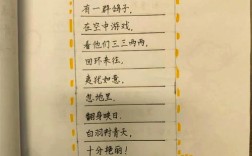 有一群鸽子，
在空中游戏，
看他们三三两两，
回环来往，
夷犹如意，
忽地里，
翻身映日，
白羽衬青天，
十分艳丽！